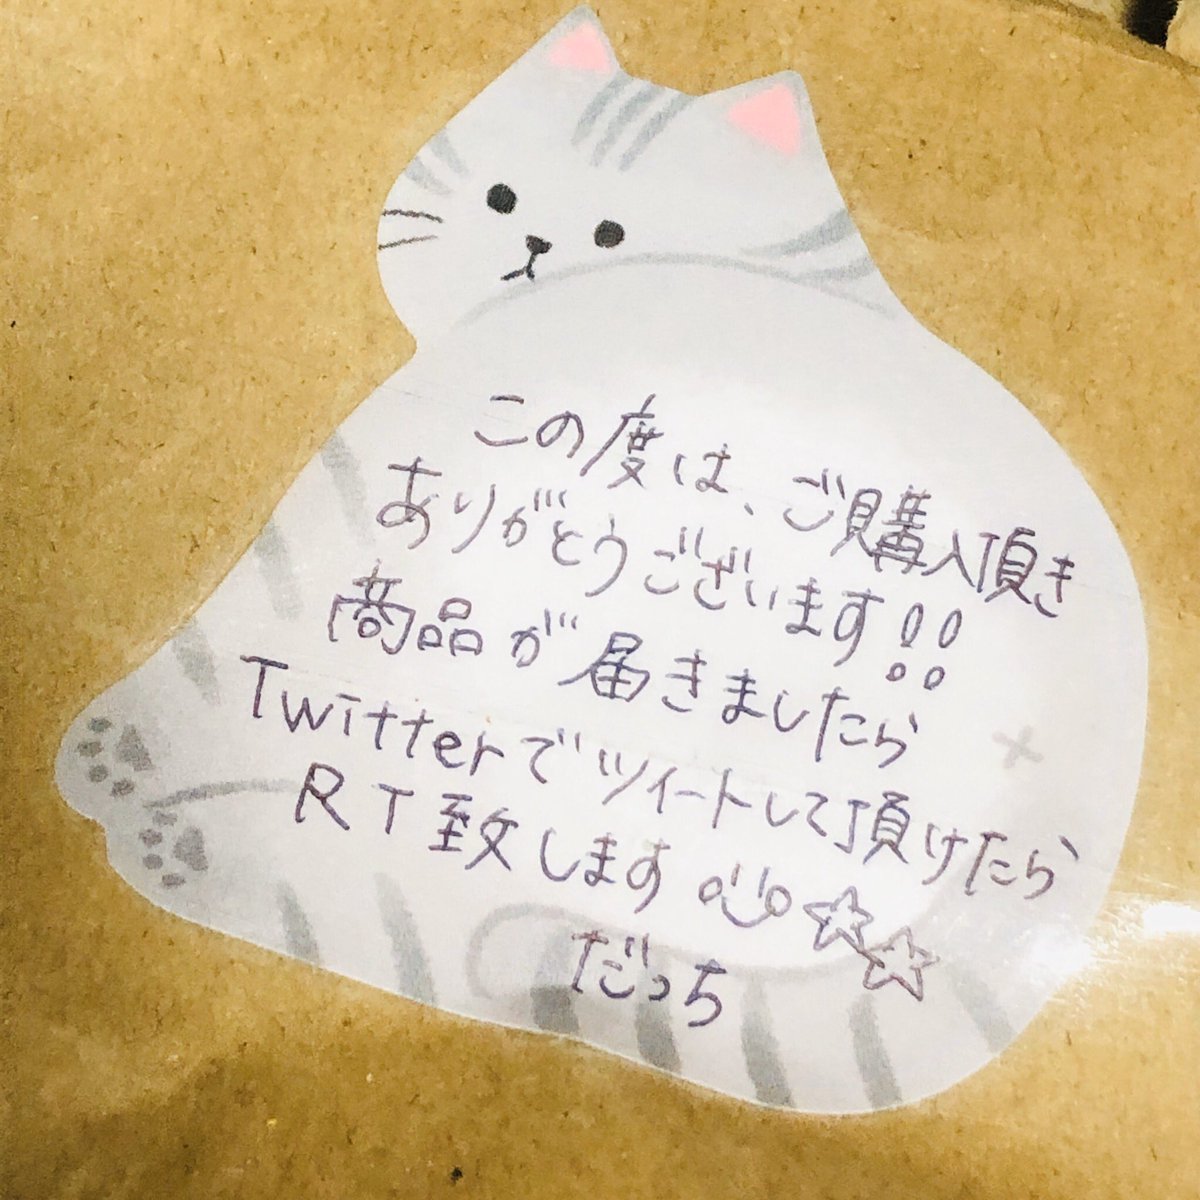 この度は、ご購入頂き
ありがとうございます!!
商品が届きましたら
Twitterでツイートして頂けたら
RT致します☆☆
だっち